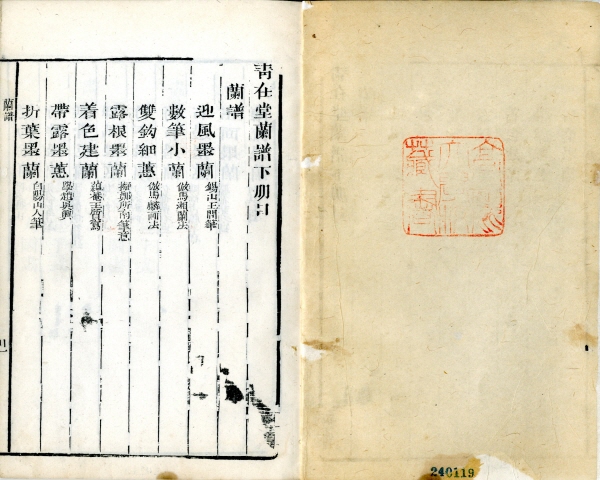 青在堂蘭譜下册目
蘭譜
迎風墨蘭 錫山王問筆
數筆小蘭 倣馬湘蘭法
雙鈎細蕙 倣馬麟画法
露根墨蘭 撫鄭所南筆意
着色建蘭
帶露墨蕙
折葉墨蘭 白陽山人筆
蘭譜
藏書
240119